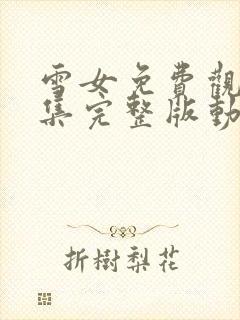 雪女免費觀
集完整版動
折樹梨花